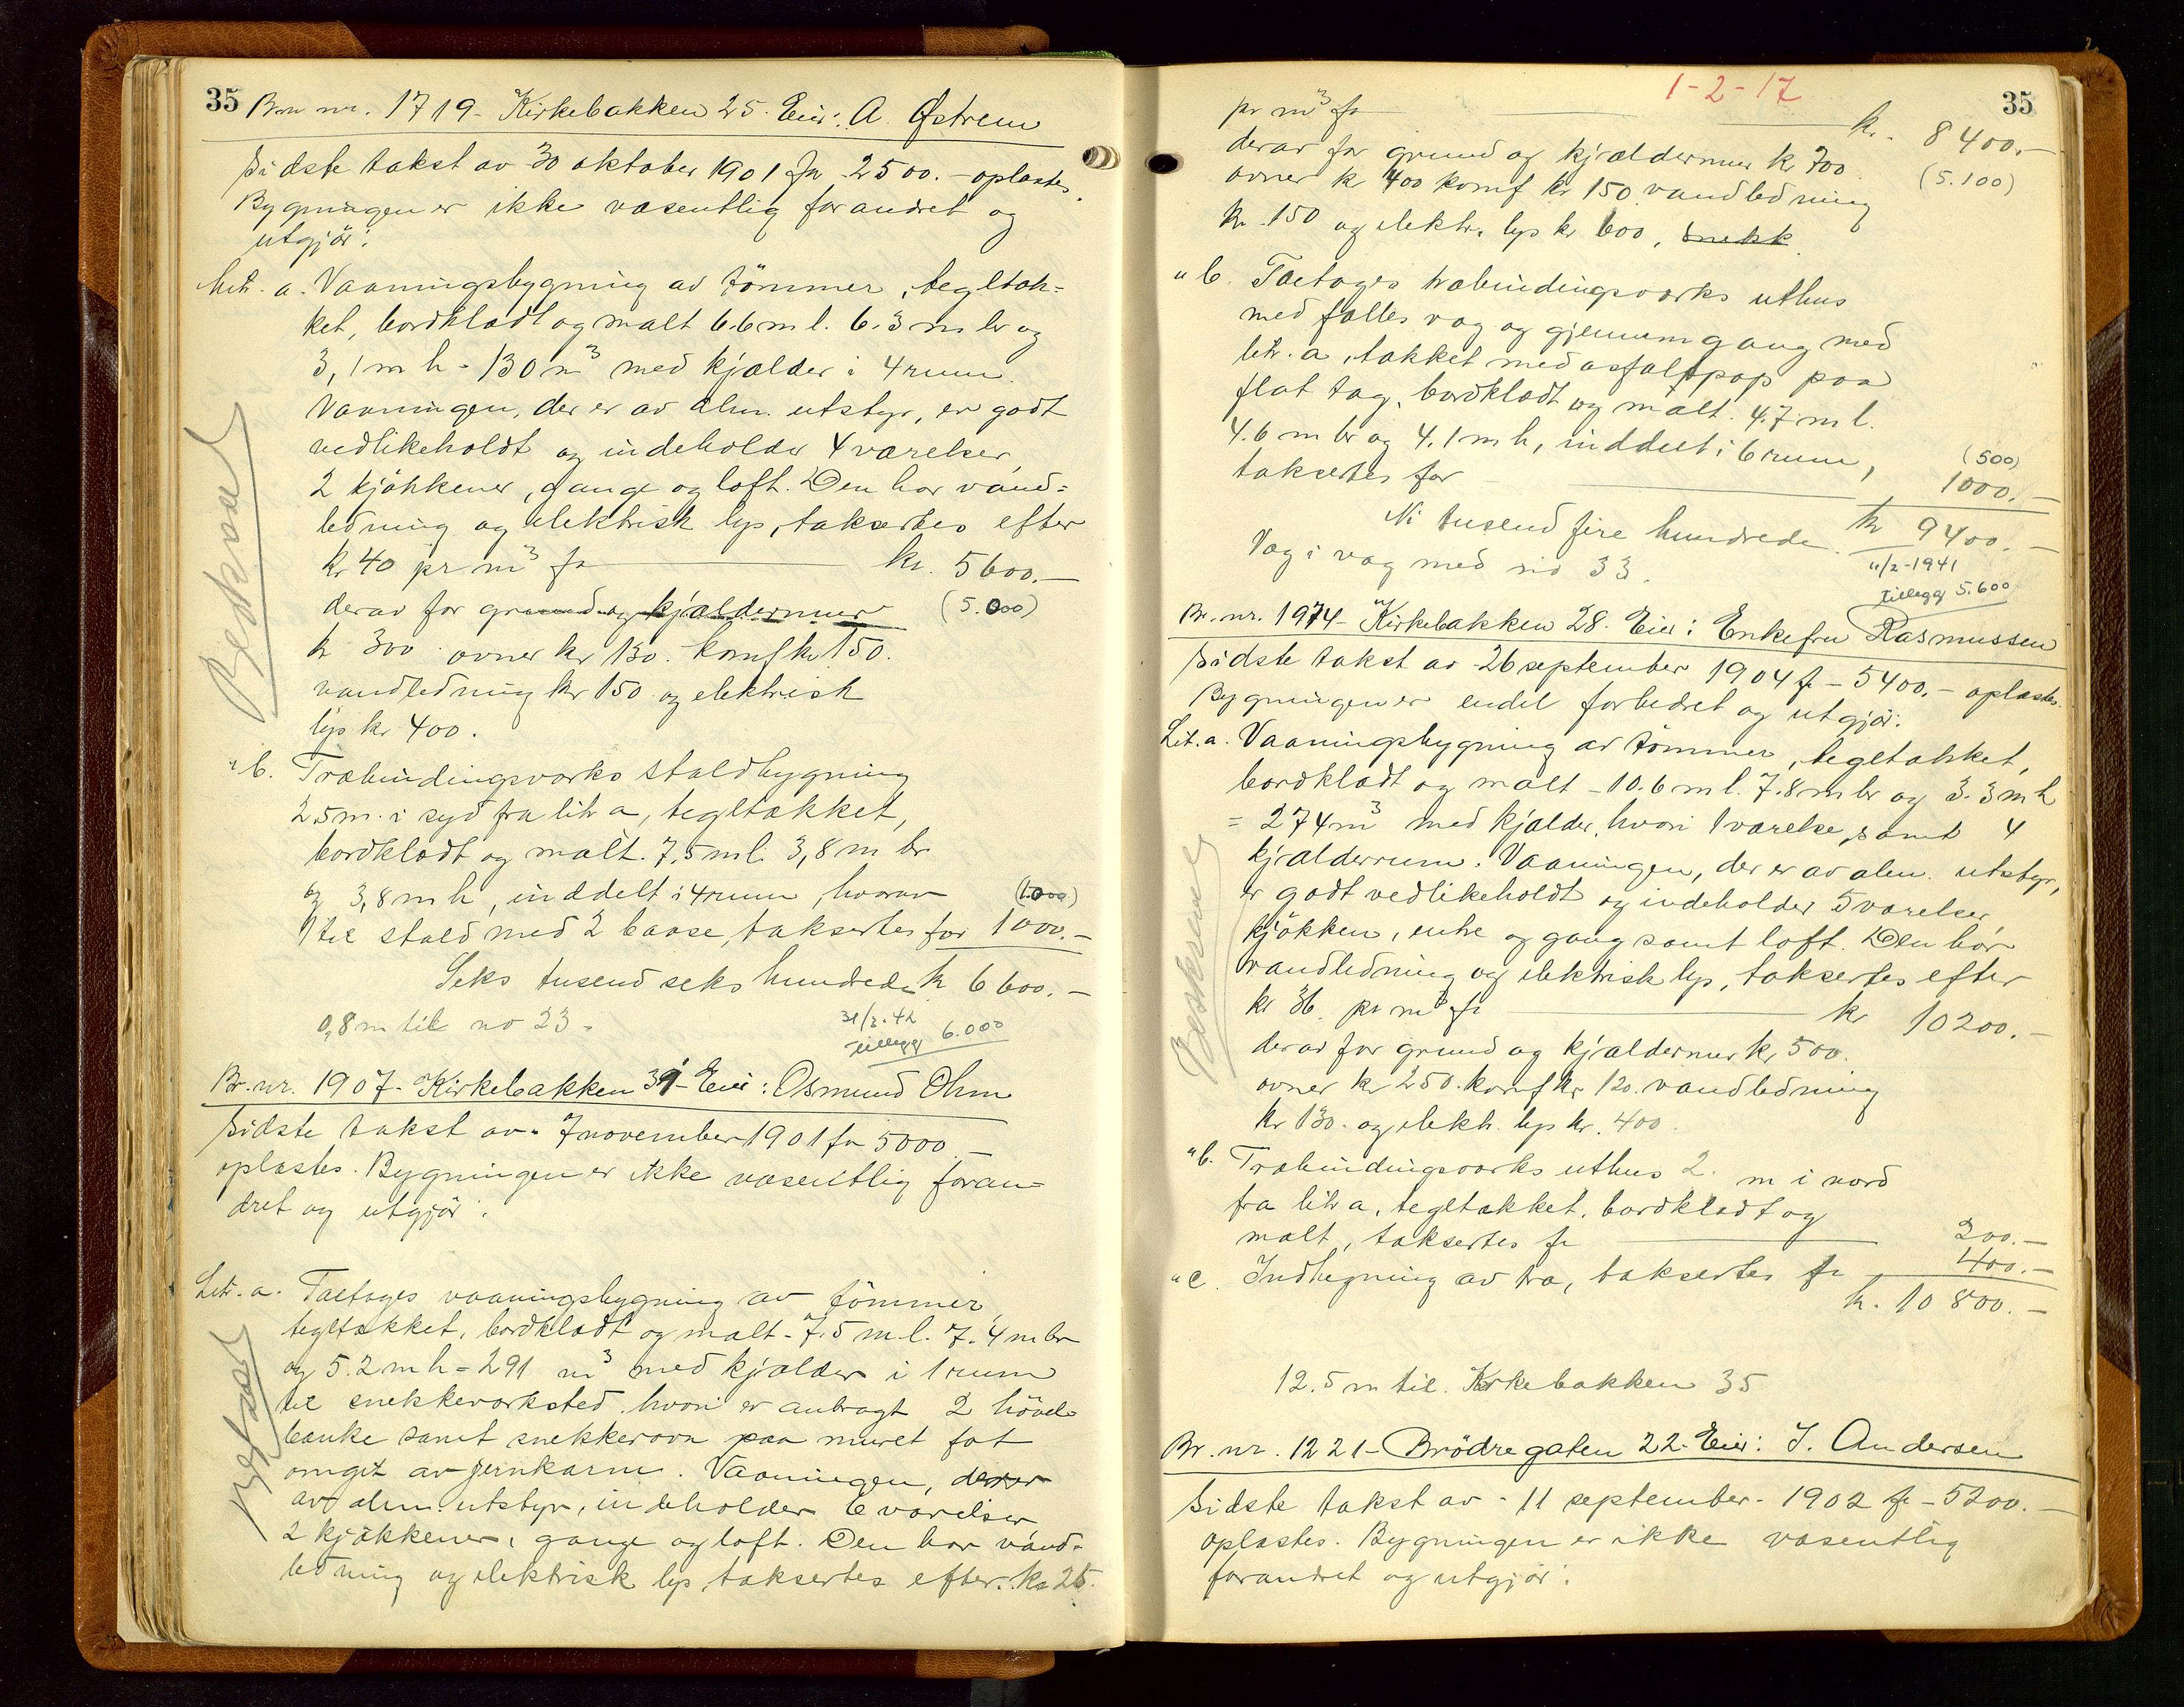 35 Br. nr. 1719 - Kirkebakken 25. Eier: A. Østrem
Sidste takst av 30 oktober 1901 fr 2500.- oplæstes.
Bygningen er ikke væsentlig forandret og
utgjör:
Litr. a. Vaaningsbygning av tömmer, tegltæk=
ket, bordklædt og malt 6.6 m l. 6.3 m br og
3,1 m h = 130 m³ med kjælder i 4 rum.
Vaaningen, der er av alm. utstyr, er godt
vedlikeholdt og indeholder 4 værelser,
2 kjökkener, gange og loft. Den har vand=
ledning og elektrisk lys, taksertes efter
kr 40 pr m³ fr kr. 5600.-
derav for grund og kjældermur (5.000)
kr 300 ovner kr 130. komf kr 150.
vandledning kr 150 og elektrisk
lys kr 400.
" b. Træbindingsverks staldbygning
25 m. i syd fra litr a, tegltækket,
bordklædt og malt. 7,5 m l. 3,8 m br
og 3,8 m h, inddelt i 4 rum, hvorav (1.000)
1 til stald med 2 baase, taksertes for 1000.-
Seks tusend seks hundrede kr 6600.-
0,8 m til no 23.
31/3.42
tillegg 6.000
Bestaaende
Br. nr. 1907 - Kirkebakken 31 - Eier: Osmund Ohm
Sidste takst av 7 november 1901 fr 5000.-
oplæstes. Bygningen er ikke væsentlig foran=
dret og utgjör:
Litr. a. Toetages vaaningsbygning av tömmer,
tegltækket, bordklædt og malt - 7.5 m l. 7.4 m br
og 5.2 m h = 291 m³ med kjælder i 1 rum
til snekkerverksted hvori er anbragt 2 hövel
bænke samt snekkerovn paa muret fot
omgit av jernkarm. Vaaningen, der er
av alm. utstyr, indeholder 6 værelser
2 kjökkener, gange og loft. Den har vand=
ledning og elektrisk lys, taksertes efter kr 25.
1-2-17
35
pr m³ fr kr. 8400.-
derav for grund og kjældermur kr 700 (5.100)
ovner kr 400 komf kr 150 vandledning
kr 150 og elektr. lys kr 600, snekk
" b. Toetages træbindingsverks uthus
med fælles væg og gjennemgang med
litr. a, tækket med asfaltpap paa
flat tag, bordklædt og malt. 4.7 m l.
4.6 m br og 4.1 m h, inddelt i 6 rum, (500)
taksertes for 1000.-
Ni tusend fire hundrede kr 9400.-
Væg i væg med no 33.
11/2-1941
tillegg 5.600
Br. nr. 1974 - Kirkebakken 28. Eier: Enkefru Rasmussen
Sidste takst av 26 september 1904 fr - 5400.- oplæstes.
Bygningen er endel forbedret og utgjör:
Litr. a. Vaaningsbygning av tömmer, tegltækket,
bordklædt og malt - 10.6 m l. 7.8 m br og 3.3 m h
= 274 m³ med kjælder, hvori 1 værelse, samt 4
kjælderrum. Vaaningen, der er av alm. utstyr,
er godt vedlikeholdt og indeholder 5 værelser,
kjökken, entre og gang samt loft. Den har
vandledning og elektrisk lys, taksertes efter
kr 36. pr m³ fr kr 10200.-
derav for grund og kjældermur kr 500.
ovner kr 250. komf kr 120. vandledning
kr 130. og elektr. lys kr. 400.
" b. Træbindingsverks uthus 2. m i nord
fra litr a, tegltækket, bordklædt og
malt, taksertes fr 200.-
" c. Indhegning av træ, taksertes fr 400.-
kr. 10800.-
12.5 m til Kirkebakken 35
Br. nr. 1221 - Brödregaten 22. Eier: J. Andersen
Sidste takst av 11 september 1902 fr - 5200.-
oplæstes. Bygningen er ikke væsentlig
forandret og utgjör: